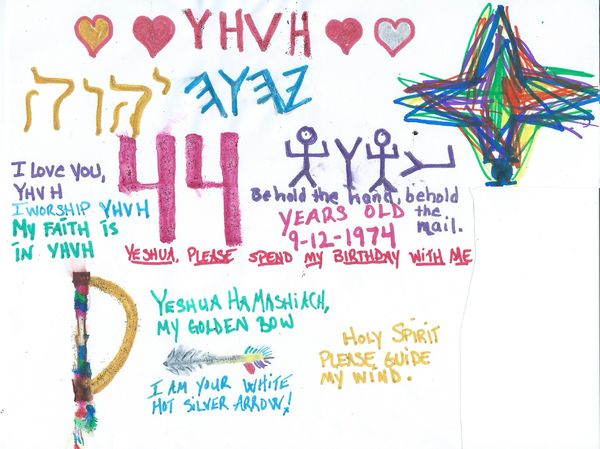 YHVH
יהוה 𐤉𐤄𐤅𐤄
44
I love you,
YHVH
I WORSHIP YHVH
My FAITH iS
iN YHVH
Behold the hand, behold
the
mail.
YEARS OLD
9-12-1974
YESHUA, PLEASE SPEND my BIRTHDAY WITH ME
YESHUA HAMASHIACH,
MY GOLDEN BOW
I AM YOUR WHITE
HOT SILVER ARROW!
HOLY SPIRIT
PLEASE GUIDE
MY WIND.